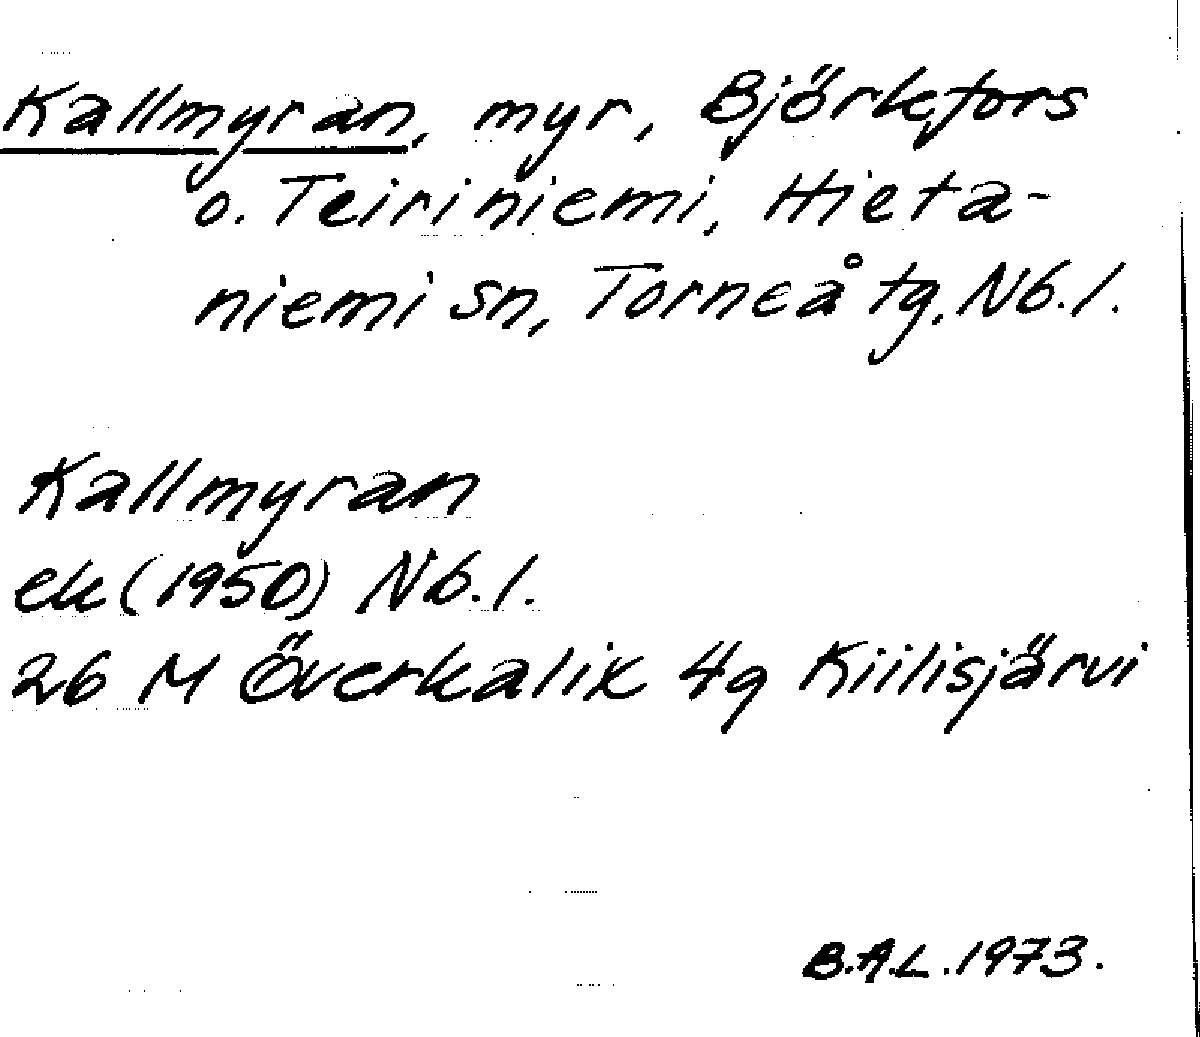 Kallmyran, myr, Björkfors
o. Teiriniemi, Hieta-
niemi sn, Torneå tg. Nb. l.
Kallmyran
ek (1950) Nb. l.
26 M Överkalix 4g Kiilisjärvi
B.A.L. 1973.